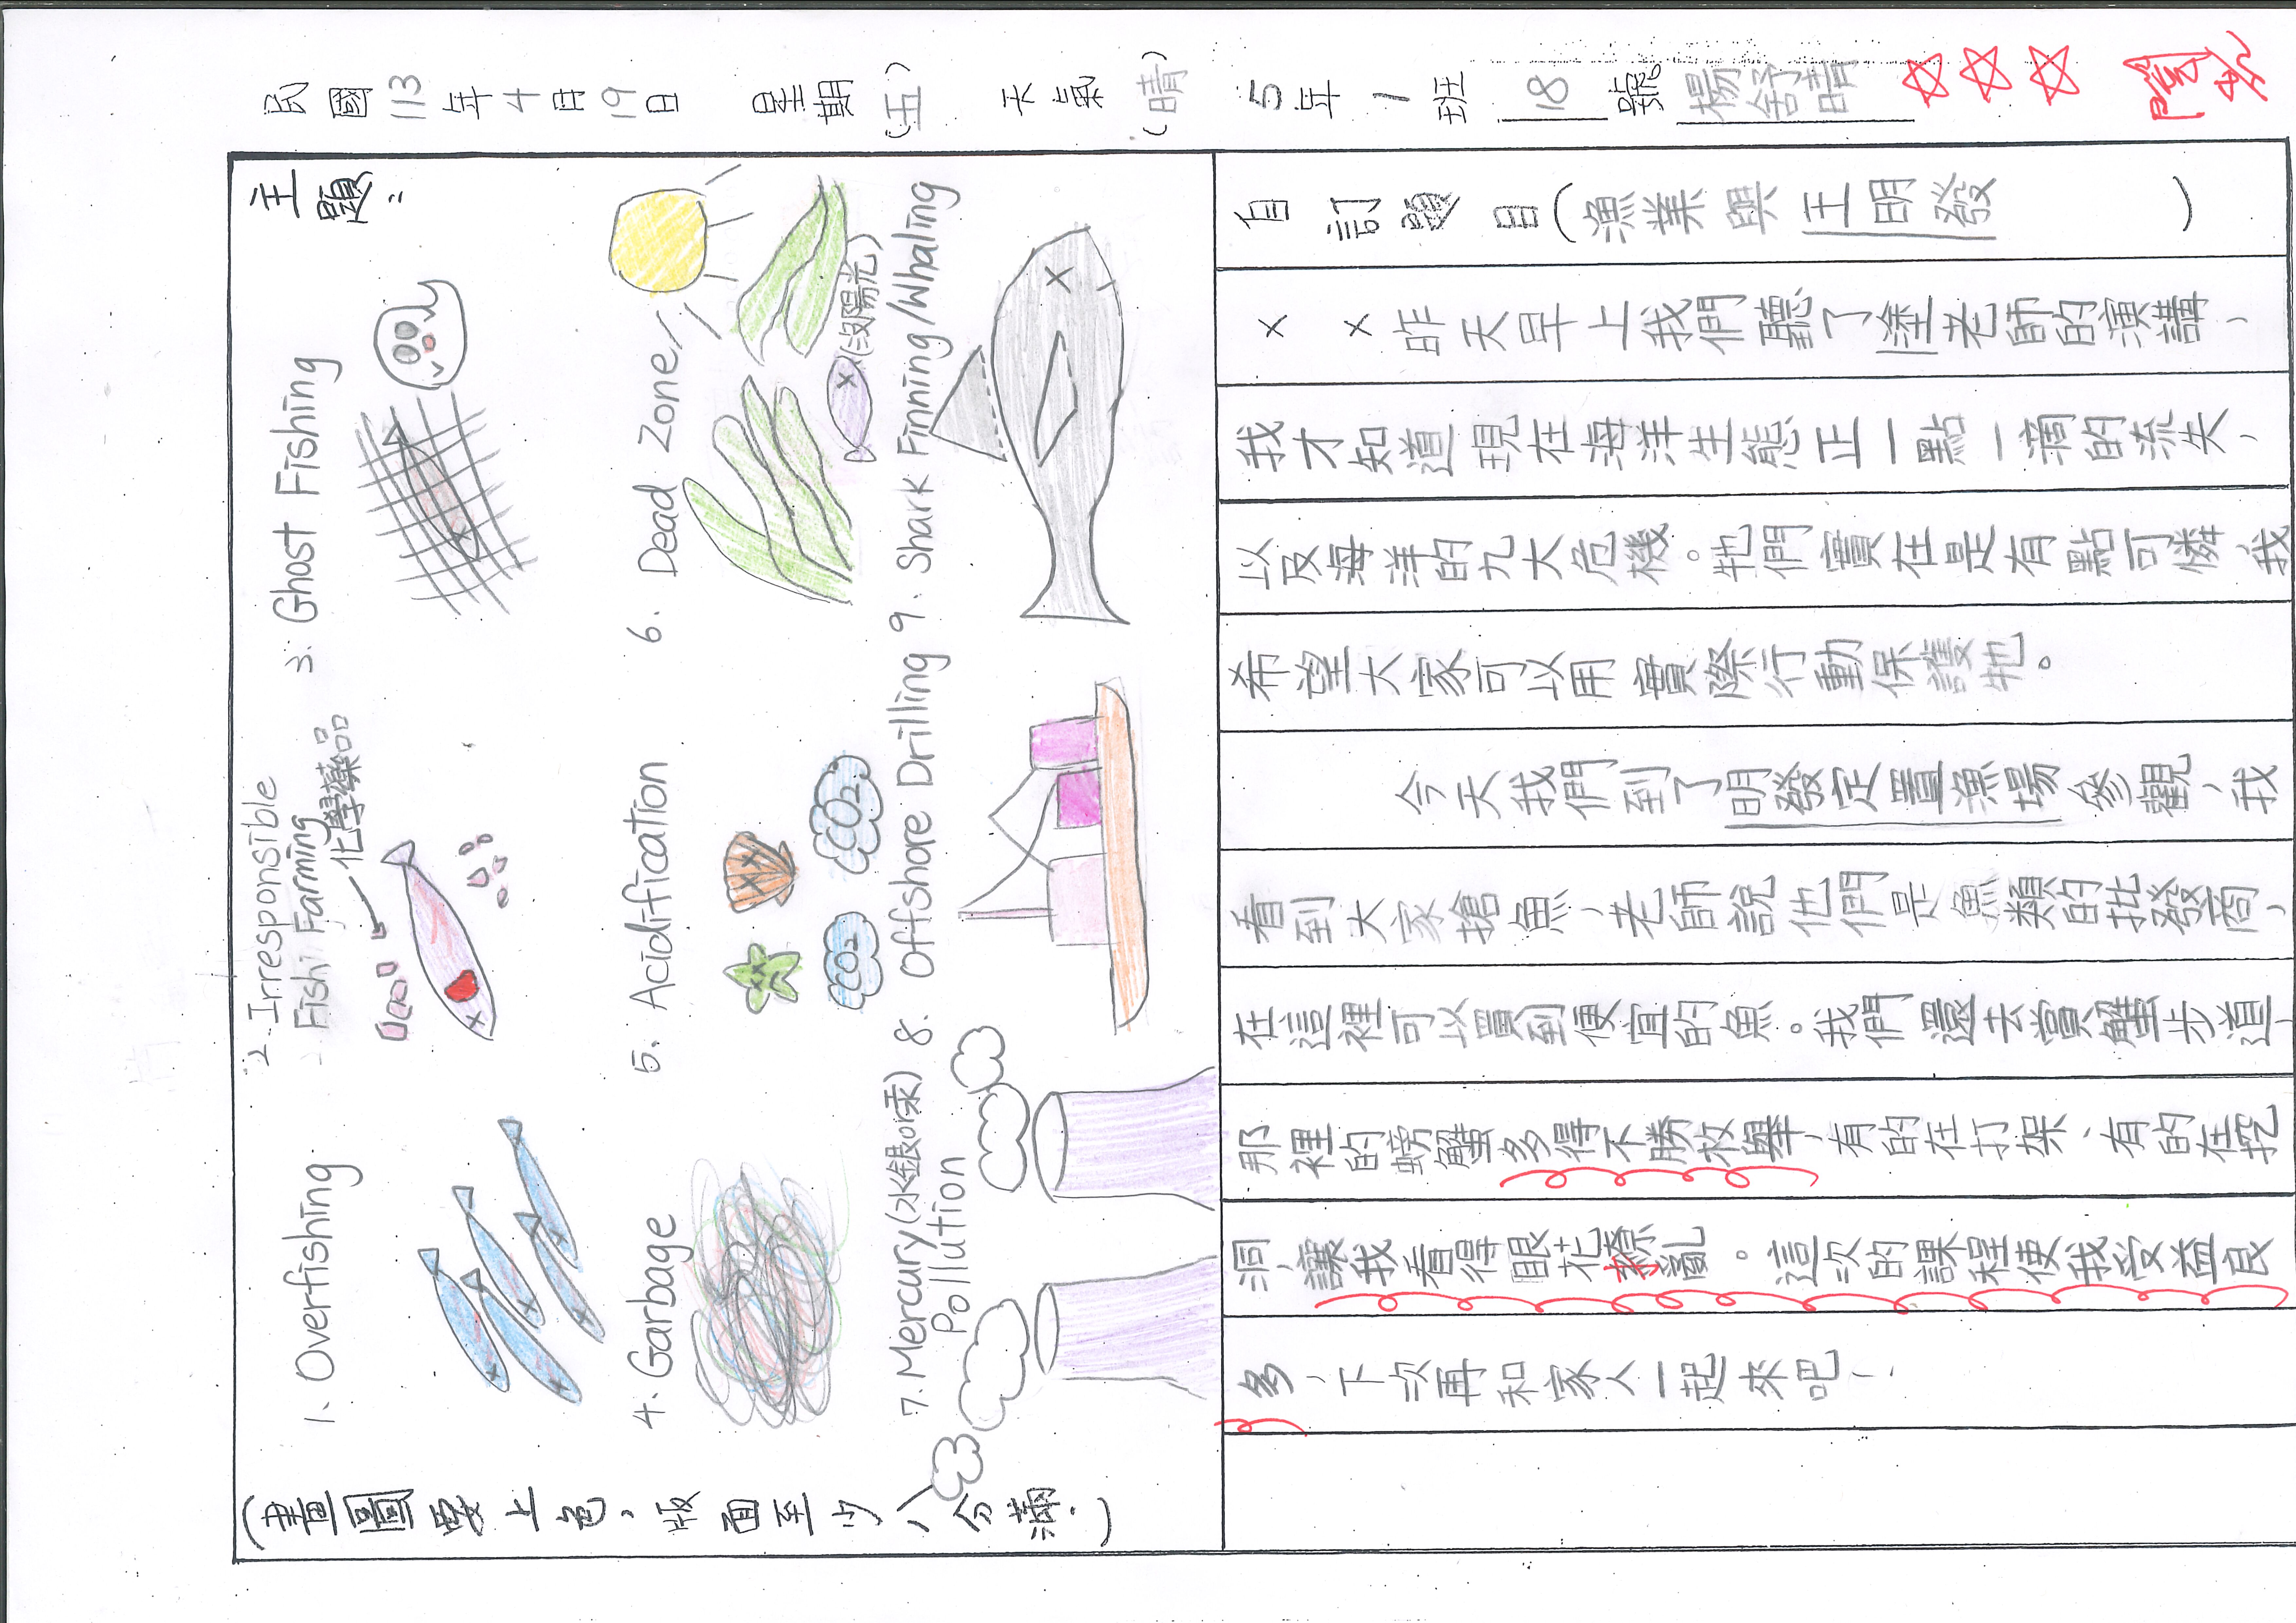 民國113年4月19日 星期(五) 天氣(晴) 5年1班 18號 楊舒晴
閱
主題:
1. Overfishing
2. Irresponsible
Fishi Farming
化學藥品
3. Ghost Fishing
4. Garbage
5. Acidification
CO2
CO2
6. Dead Zone
(沒陽光)
7. Mercury(水銀or汞)
Pollution
8. Offshore Drilling
9. Shark Finning/Whaling
(畫圖要上色,版面至少八分滿.)
自訂題目(漁業與王明發)
××昨天早上我們聽了塗老師的演講,
我才知道現在海洋生態正一點一滴的流失,
以及海洋的九大危機。牠們實在是有點可憐,我
希望大家可以用實際行動保護牠。
今天我們到了明發定置漁場參觀,我
看到大家搶魚,老師說他們是魚類的批發商,
在這裡可以買到便宜的魚。我們還去賞蟹步道,
那裡的螃蟹多得不勝枚舉,有的在打架、有的在挖
洞,讓我看得眼花繚亂。這次的課程使我受益良
多,下次再和家人一起來吧!